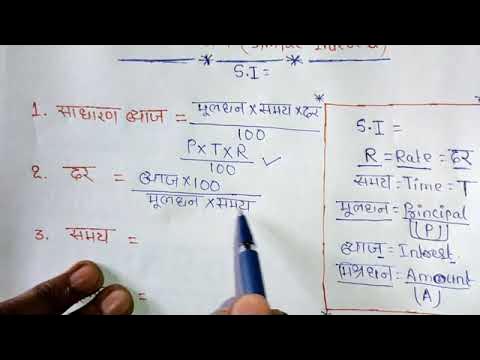 (Simple Interest)
S.I =
1. साधारण ब्याज = मूलधन × समय × दर
100
P×T×R
100
2. दर = ब्याज × 100
मूलधन × समय
3. समय =
=
S.I =
R = Rate = दर
समय = Time = T
मूलधन = Principal
(P)
ब्याज = Interest
मिश्रधन = Amount
(A)